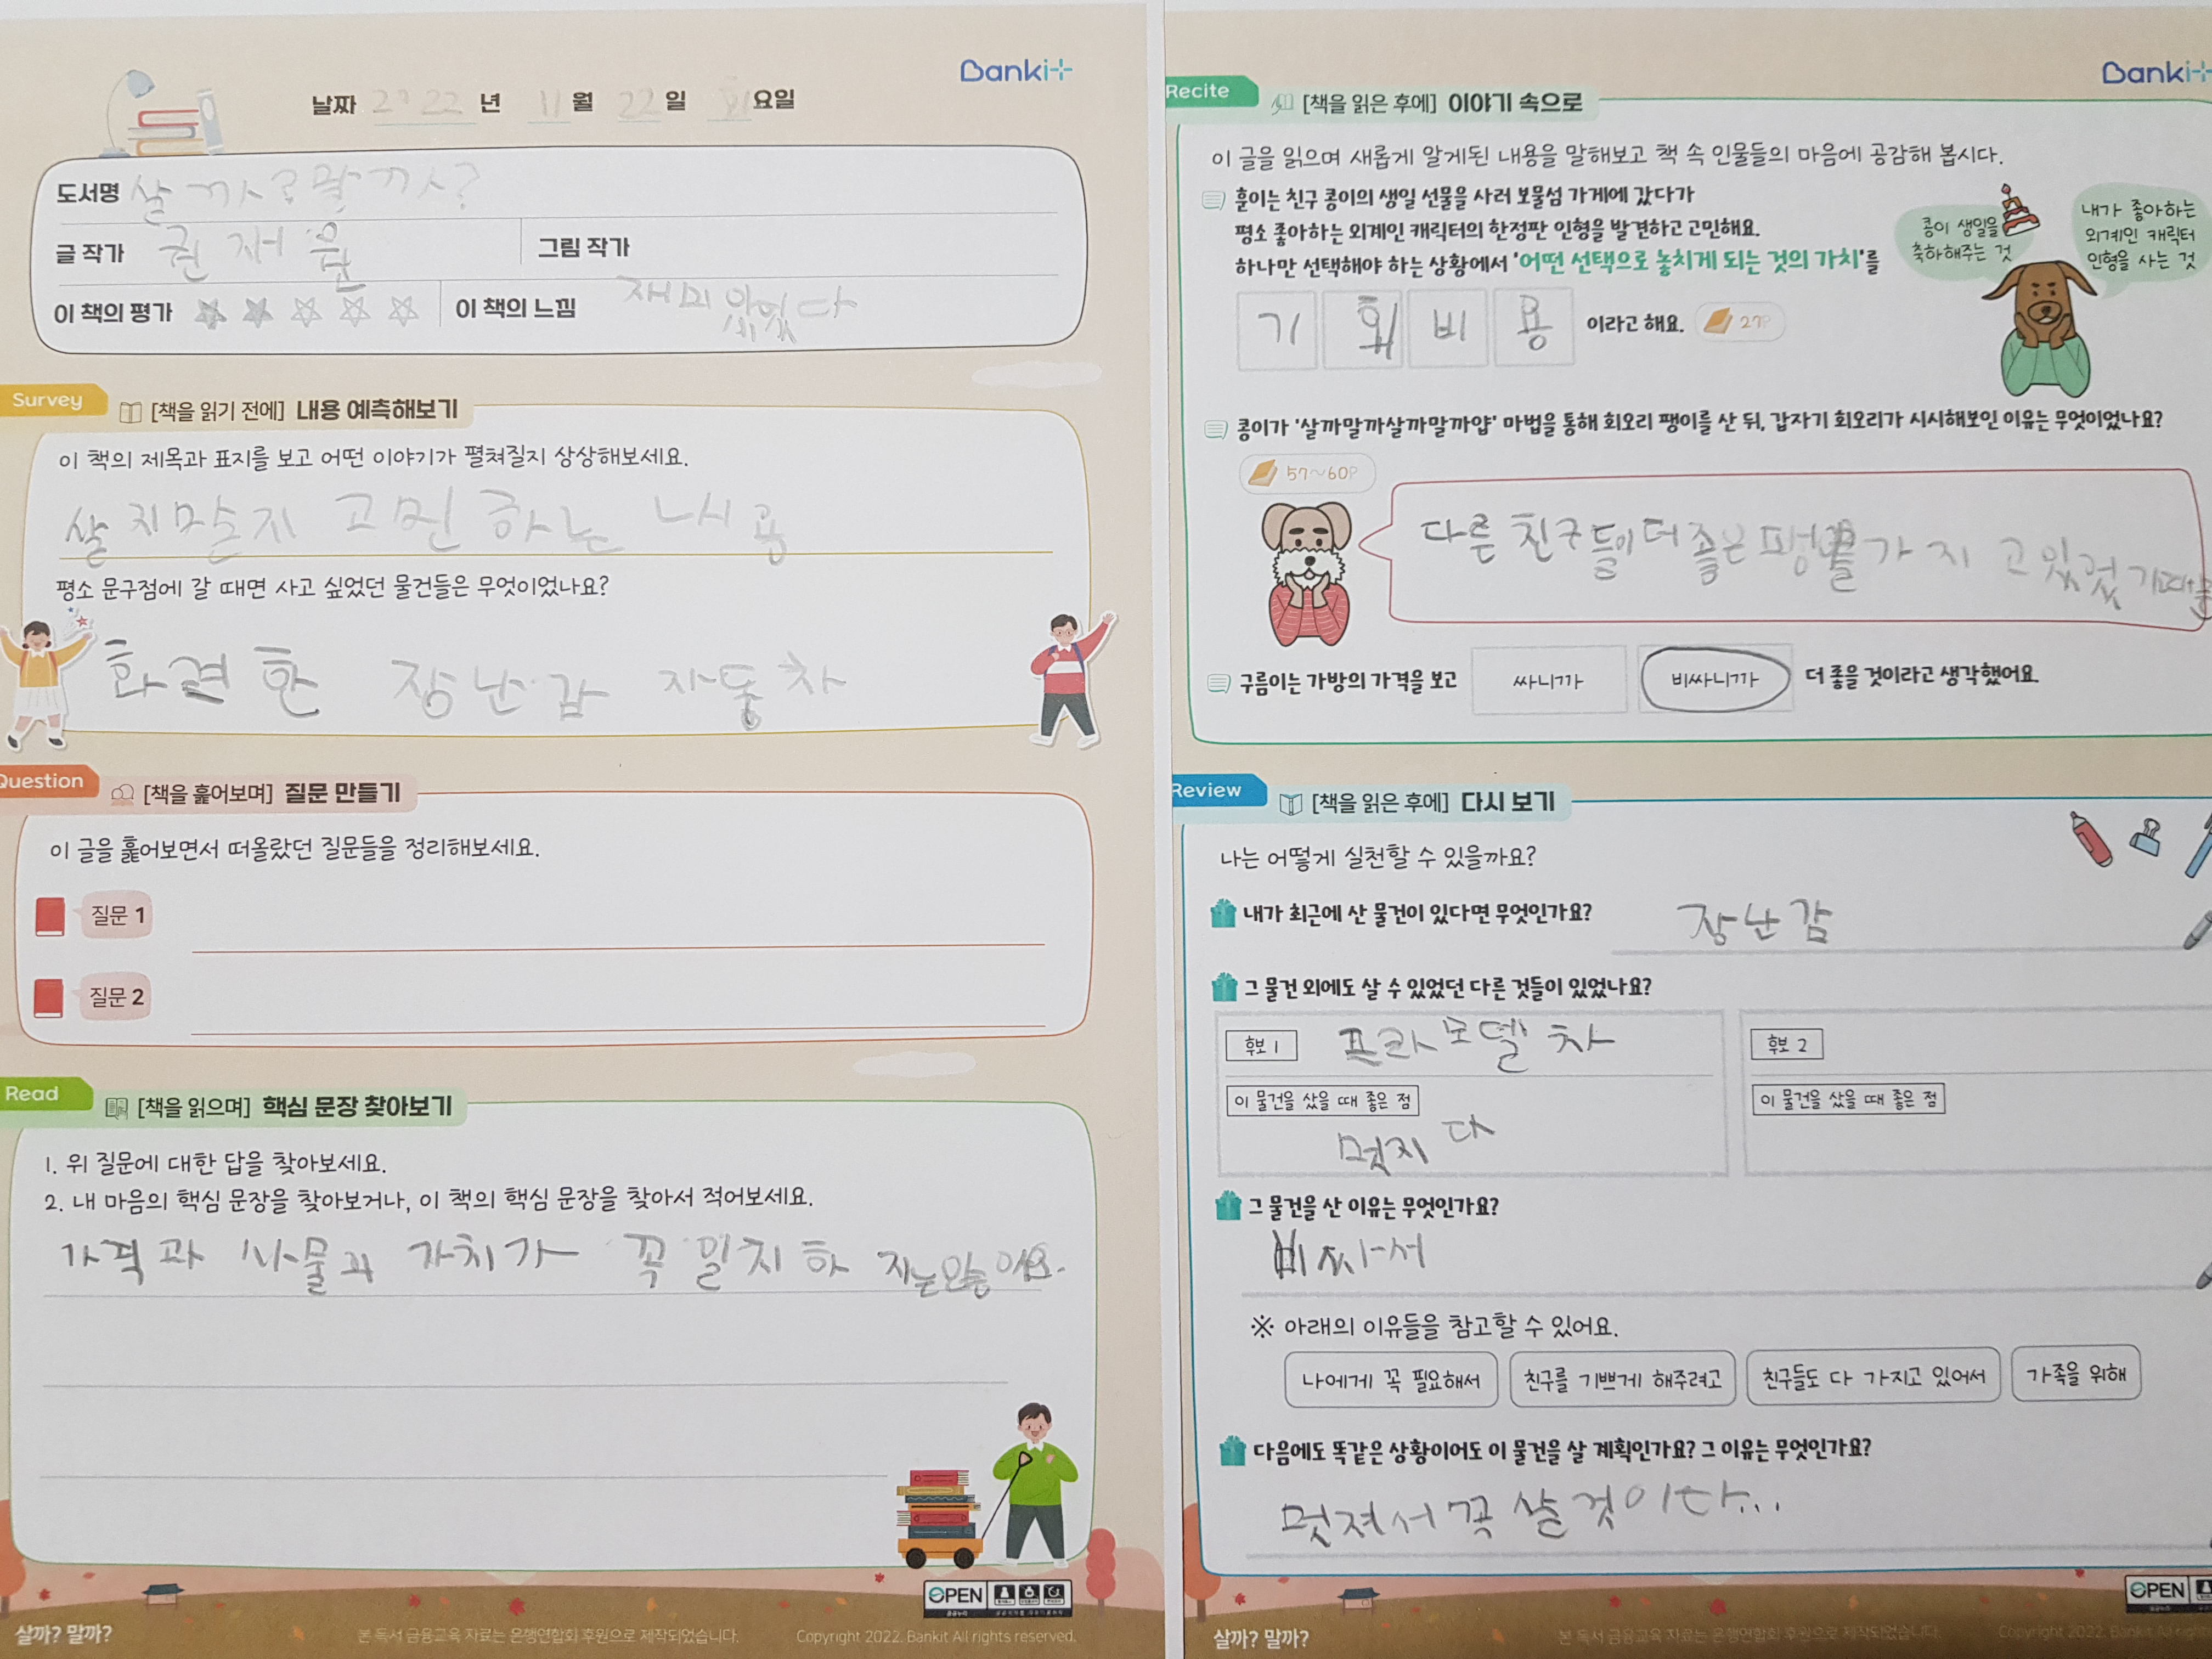 Bankit
날짜 2022 년 11 월 22 일 화요일
도서명 살까? 말까?
글 작가 권재원 그림 작가
이 책의 평가 이 책의 느낌 재미있었다
Survey [책을 읽기 전에] 내용 예측해보기
이 책의 제목과 표지를 보고 어떤 이야기가 펼쳐질지 상상해보세요.
살지 말지 고민 하는 내용
평소 문구점에 갈 때면 사고 싶었던 물건들은 무엇이었나요?
화려한 장난감 자동차
Question [책을 훑어보며] 질문 만들기
이 글을 훑어보면서 떠올랐던 질문들을 정리해보세요.
질문 1
질문 2
Read [책을 읽으며] 핵심 문장 찾아보기
1. 위 질문에 대한 답을 찾아보세요.
2. 내 마음의 핵심 문장을 찾아보거나, 이 책의 핵심 문장을 찾아서 적어보세요.
가격과 사물과 가치가 꼭 일치하지는않아요.
OPEN
공공누리
살까? 말까?
본 독서 금융교육 자료는 은행연합회 후원으로 제작되었습니다.
Copyright 2022. Bankit All rights reserved.
Bankit
Recite [책을 읽은 후에] 이야기 속으로
이 글을 읽으며 새롭게 알게된 내용을 말해보고 책 속 인물들의 마음에 공감해 봅시다.
훈이는 친구 콩이의 생일 선물을 사러 보물섬 가게에 갔다가
평소 좋아하는 외계인 캐릭터의 한정판 인형을 발견하고 고민해요.
하나만 선택해야 하는 상황에서 '어떤 선택으로 놓치게 되는 것의 가치'를
기회비용 이라고 해요. 27P
콩이 생일을
축하해주는 것
내가 좋아하는
외계인 캐릭터
인형을 사는 것
콩이가 '살까말까살까말까얍' 마법을 통해 회오리 팽이를 산 뒤, 갑자기 회오리가 시시해보인 이유는 무엇이었나요?
57~60P
다른 친구들이 더 좋은 팽이를 가지고있었기때문
구름이는 가방의 가격을 보고 싸니까 비싸니까 더 좋을 것이라고 생각했어요.
Review [책을 읽은 후에] 다시 보기
나는 어떻게 실천할 수 있을까요?
내가 최근에 산 물건이 있다면 무엇인가요? 장난감
그 물건 외에도 살 수 있었던 다른 것들이 있었나요?
후보 1 프라모델 차
이 물건을 샀을 때 좋은 점
멋지다
후보 2
이 물건을 샀을 때 좋은 점
그 물건을 산 이유는 무엇인가요?
비싸서
※ 아래의 이유들을 참고할 수 있어요.
나에게 꼭 필요해서 친구를 기쁘게 해주려고 친구들도 다 가지고 있어서 가족을 위해
다음에도 똑같은 상황이어도 이 물건을 살 계획인가요? 그 이유는 무엇인가요?
멋져서 꼭 살 것이다...
OPEN
살까? 말까?
본 독서 금융교육 자료는 은행연합회 후원으로 제작되었습니다.
Copyright 2022. Bankit All rights